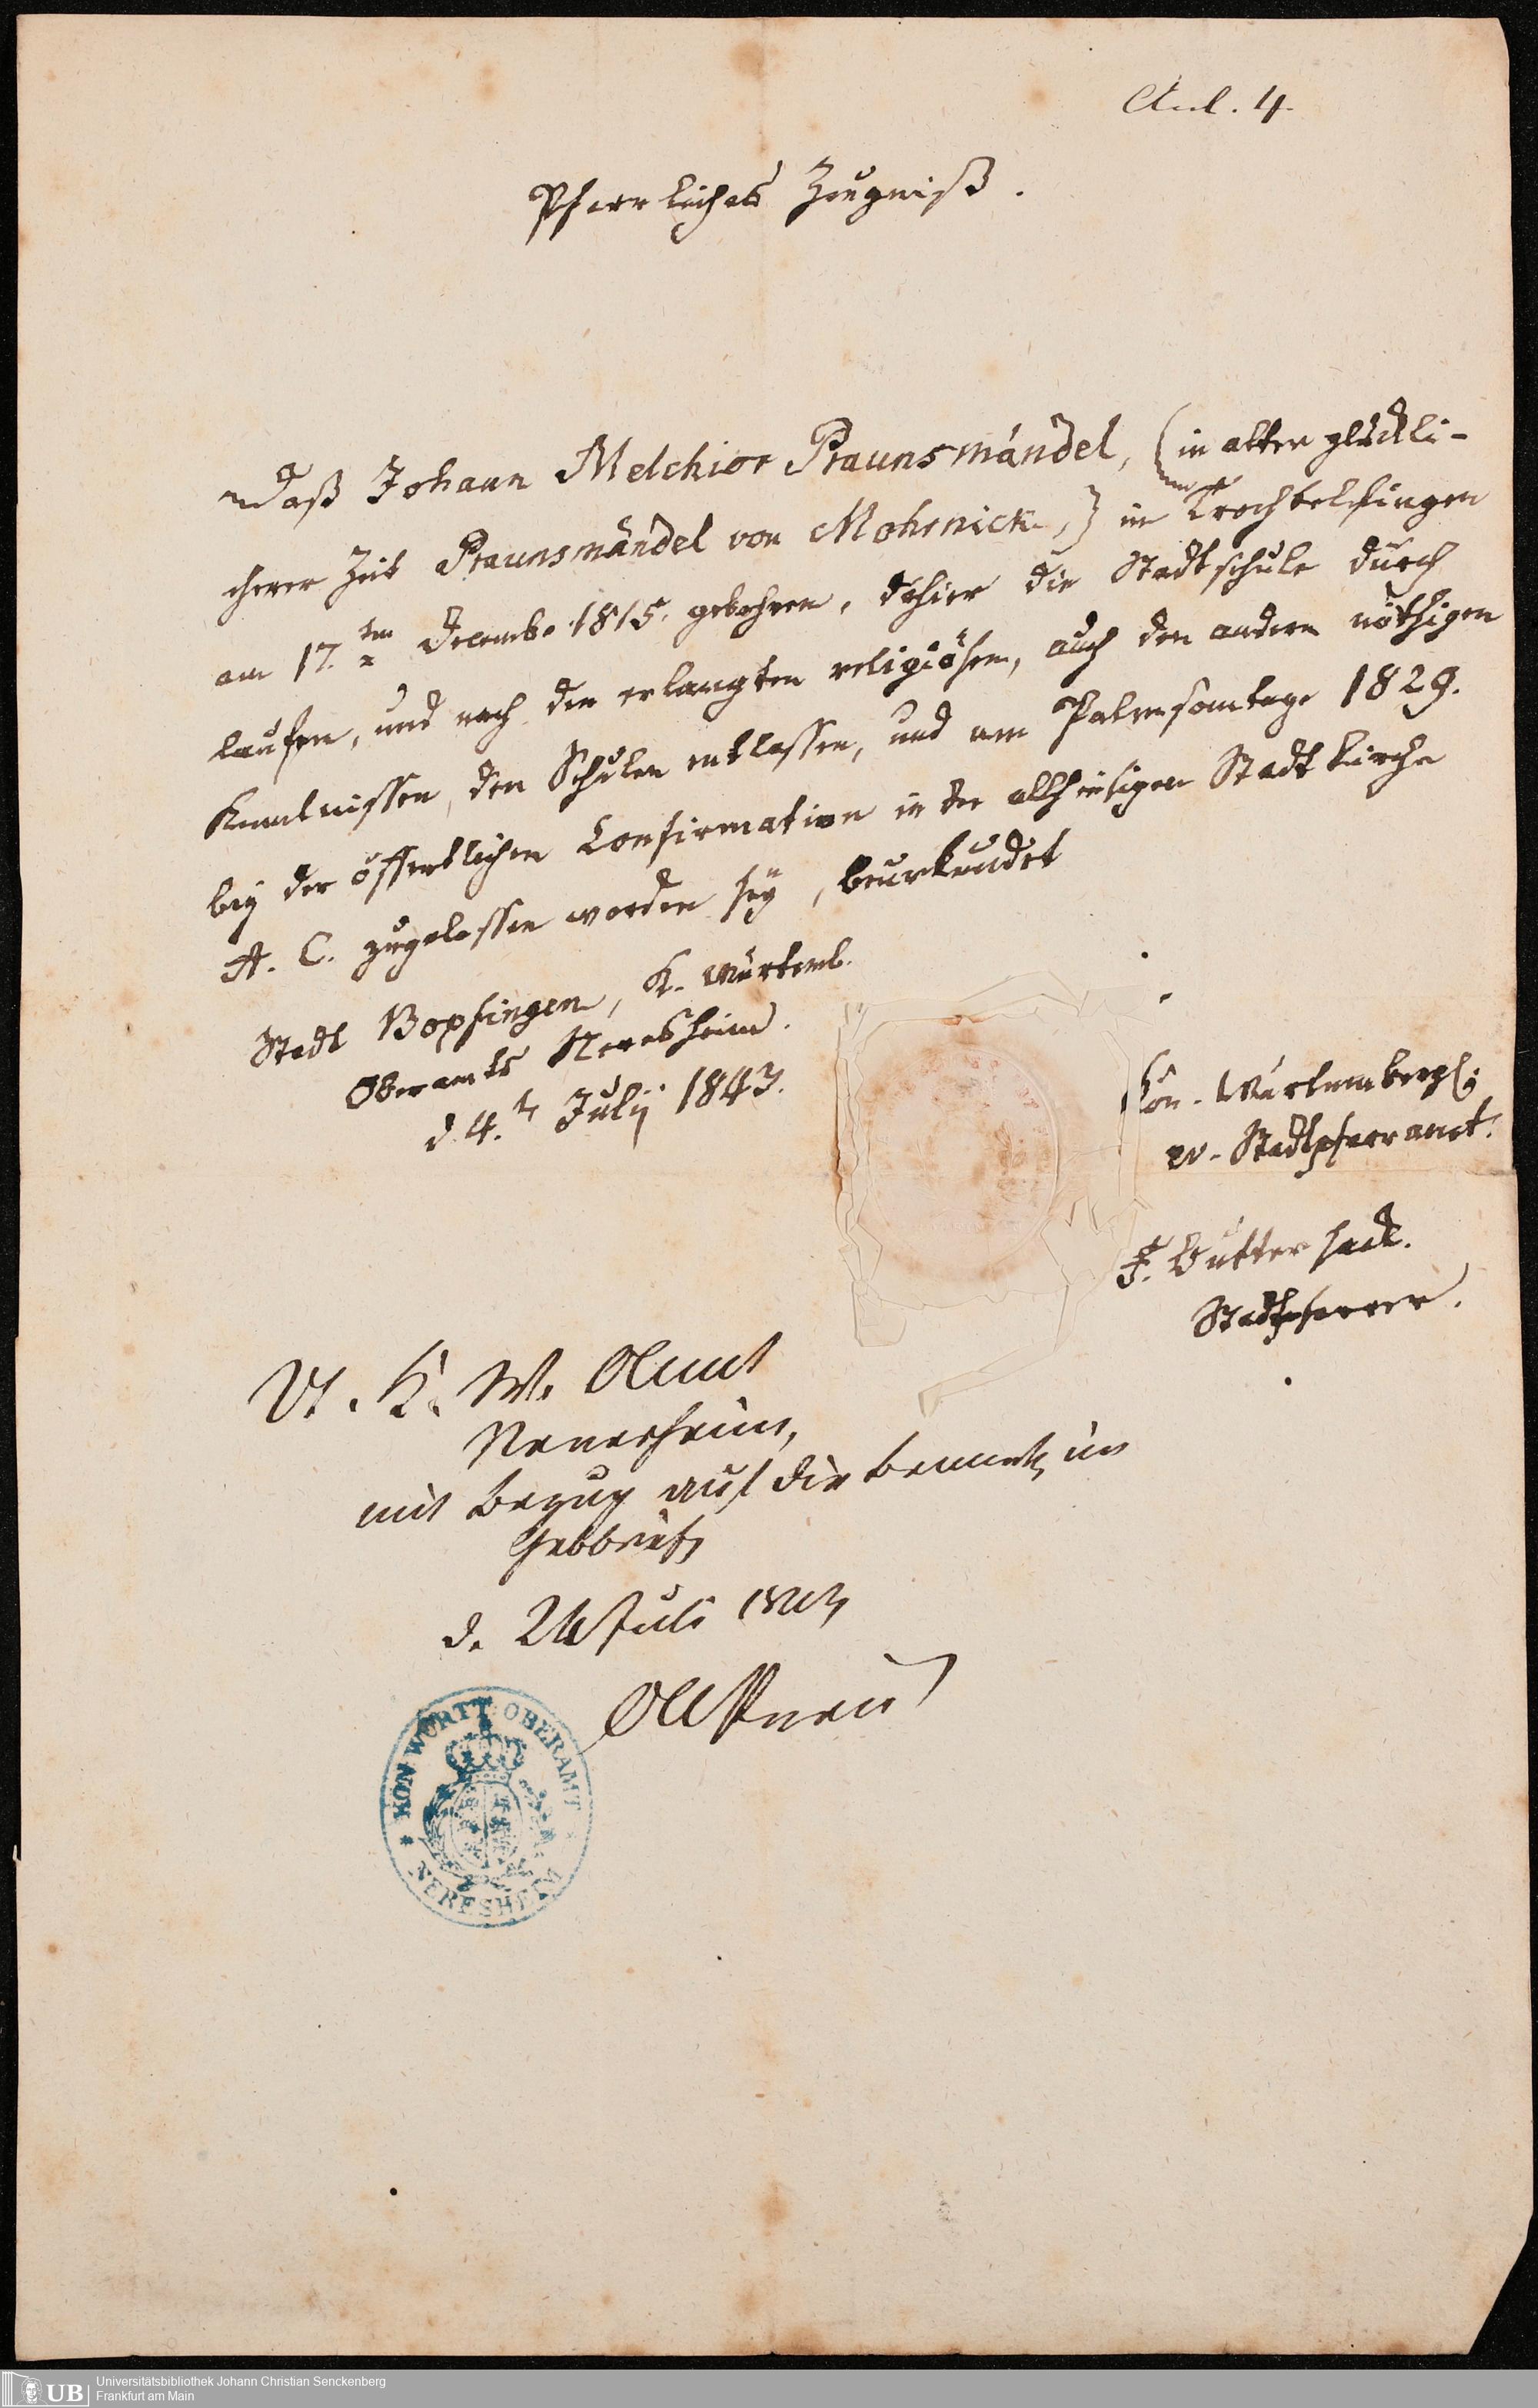 Anl. 4.
Pfarrliches Zeugniß.
Daß Johann Melchior Praunsmändel, (in alter glückli-
cherer Zeit Praunsmändel von Mohrnick,) in Trochtelfingen
am 17.ten Decembr. 1815. gebohren, dahier die Stadtschule durch
laufen, und nach den erlangten religiösen, auch den andern nöthigen
Kenntnissen, den Schulen entlassen, und am Palmsontage 1829.
bey der öffentlichen Confirmation in der allhiesigen Stadtkirche
A. C. zugelassen worden sey, beurkundet
Stadt Bopfingen, K. Würtemb.
Oberamts Neresheim.
d. 4.t July 1843.
Kön. Würtembergl.
ev. Stadtpfarramt.
F. Butter
Stadtpfarrer.
Vt. K. W. OAmt
Neresheim,
mit Bezug auf die Bemerk. im
Gebbrief
d. 24 Juli 1843
KÖN. WÜRTT. OBERAMT
NERESHEIM
UB
Universitätsbibliothek Johann Christian Senckenberg
Frankfurt am Main